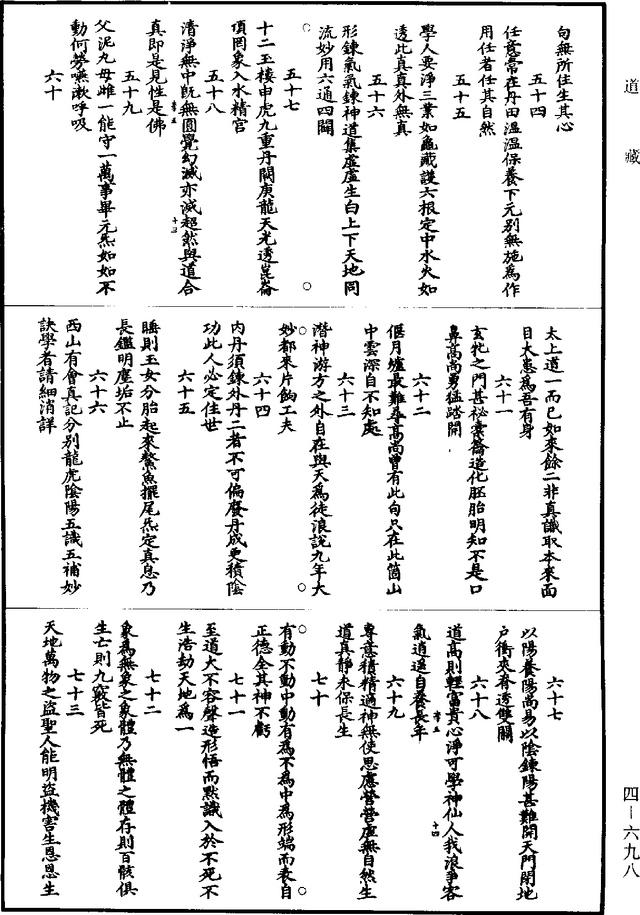 道藏
句無所住生其心
五十四
任意常在丹田溫溫保養下元别無施為作
用任者任其自然
五十五
學人要淨三業如龜藏護六根定中水火如
透此真真外無真
五十六
形鍊氣氣鍊神道集虛虛生白上下天地同
流妙用六通四闢
五十七
十二玉樓申虎九重丹闕庚龍天光透崑崙
頂罔象入水精宮
五十八
清淨無中既無圓覺幻滅亦滅超然與道合
真即是見性是佛
五十九
父泥九母雌一能守一萬事畢元炁如如不
動何勞嚥漱呼吸
六十
太上道一而已如來餘二非真識取本來面
目大患為吾有身
六十一
玄牝之門甚祕橐籥造化胚胎明知不是口
鼻高尚勇猛踏開
六十二
偃月爐最難尋高尚曾有此句只在此箇山
中雲深自不知處
六十三
潛神游方之外自在與天為徒浪說九年大
妙都來片餉工夫
六十四
內丹須鍊外丹二者不可偏廢丹成更積陰
功此人必定住世
六十五
睡則玉女分胎起來鰲魚擺尾炁定真息乃
長鑑明塵垢不止
六十六
西山有會真記分別龍虎陰陽五識五補妙
訣學者請細消詳
六十七
以陽養陽尚易以陰鍊陽甚難開天門閉地
戶衝夾脊透雙關
六十八
道高則輕富貴心淨可學神仙人我浪爭客
氣逍遥自養長年
六十九
專意積精適神無使思慮營營虛無自然生
道真靜永保長生
七十
有動不動中動有為不為中為形端而表自
正德全其神不虧
七十一
至道大不容聲造形悟而默識入於不死不
生浩劫天地為一
七十二
象為無象之象體乃無體之體存則百骸俱
生亡則九竅皆死
七十三
天地萬物之盜聖人能明盜機害生恩恩生
四－六九八